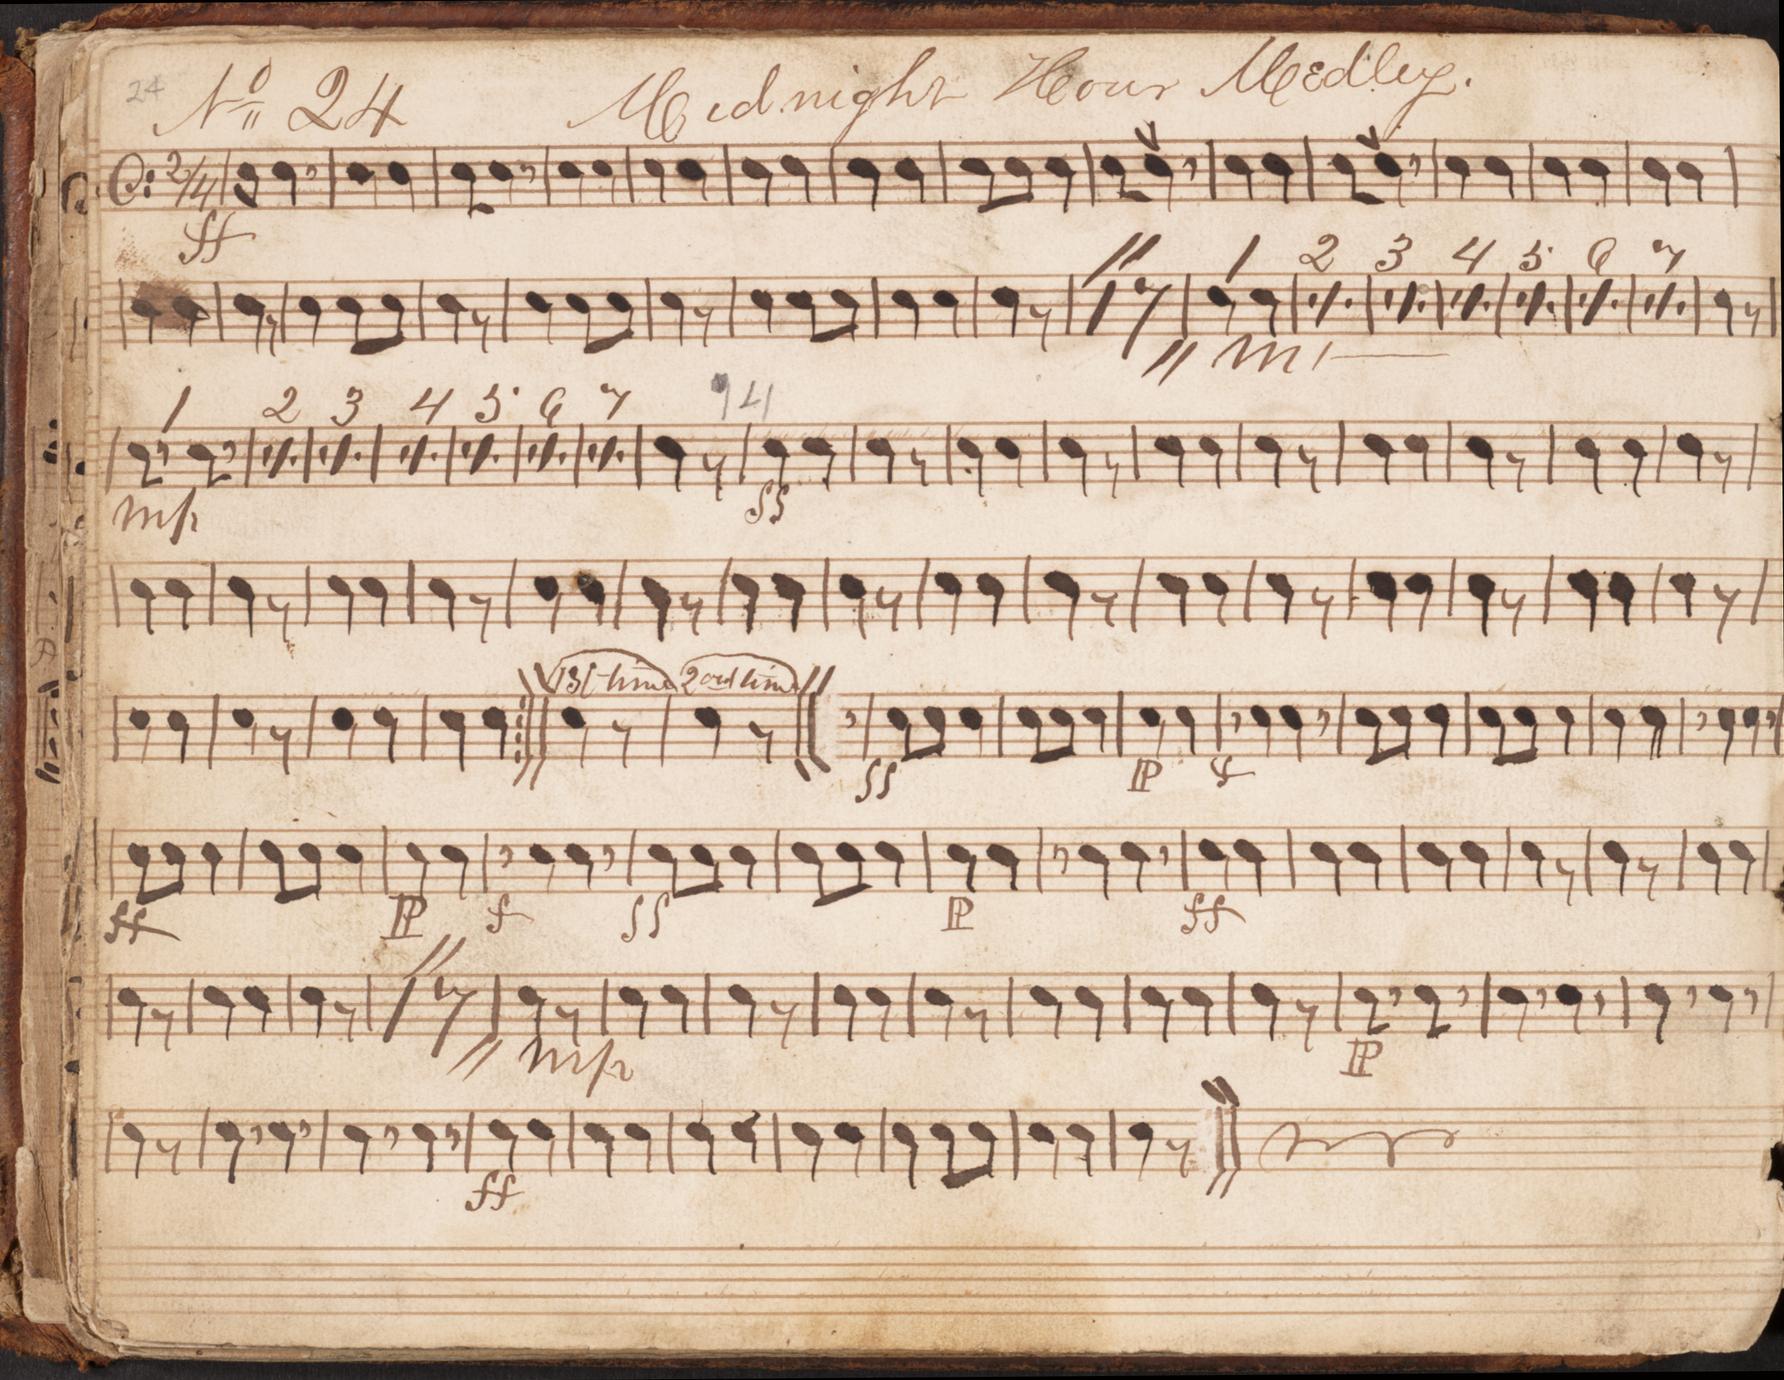 24
No 24 Midnight Hour Medley.
2/4
ff
1 2 3 4 5 6 7
1 2 3 4 5 6 7
mp ff
1st time 2nd time
ff PP f
ff PP f ff PP ff
mp PP
ff